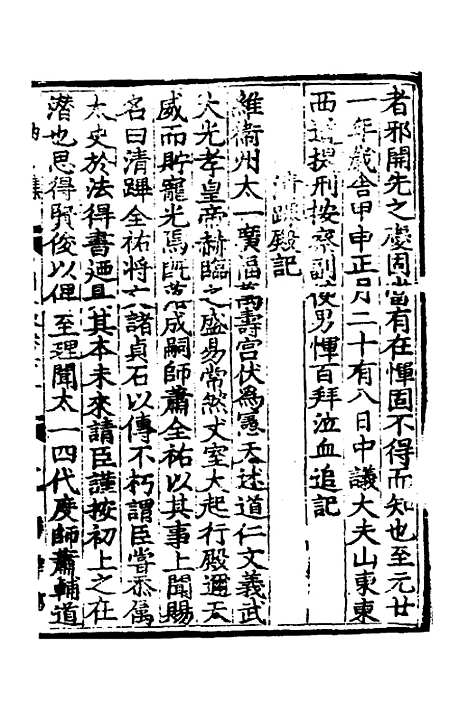 者邪開先之慶固當有在惲固不得而知也至元廿
一年歲舍甲申正月二十有八日中議大夫山東東
西道提刑按察副使男惲百拜泣血追記
清蹕殿記
維衞州太一廣福萬壽宮伏爲憲天述道仁文義武
大光孝皇帝赫臨之盛易常然丈室大起行殿邇天
威而貯寵光焉既落成嗣師蕭全祐以其事上聞賜
名曰清蹕全祐將文諸貞石以傳不朽謂臣嘗忝屬
太史於法得書迺具其本未來請臣謹按初上之在
潛也思得賢俊以俾至理聞太一四代度師蕭輔道